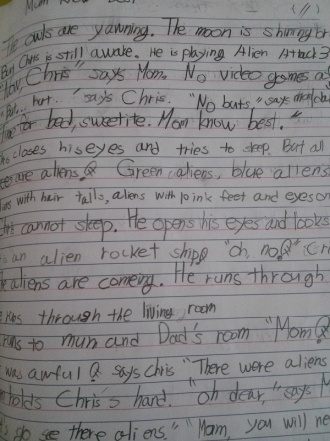 Mom Know Best
(11)
The owls are yawning. The moon is shining br
But Chris is still awake. He is playing Alien Attack 3
Now, Chris" says Mom. No video games a
But.. but.." says Chris. "No buts," says
time for bed, sweetite. Mom know best."
closes his eyes and tries to sleep. But all
are aliens. Green aliens, blue aliens
with hair tails, aliens with pink feet and eyes on
cannot sleep. He opens his eyes and looks
an alien rocket ship "oh, no
aliens are comeing. He runs through
through the living room
runs to mum and Dad's room "Mom
was awful says Chris "There were aliens
holds Chris's hard. "oh dear," says
see there aliens." "Mam, you will ne